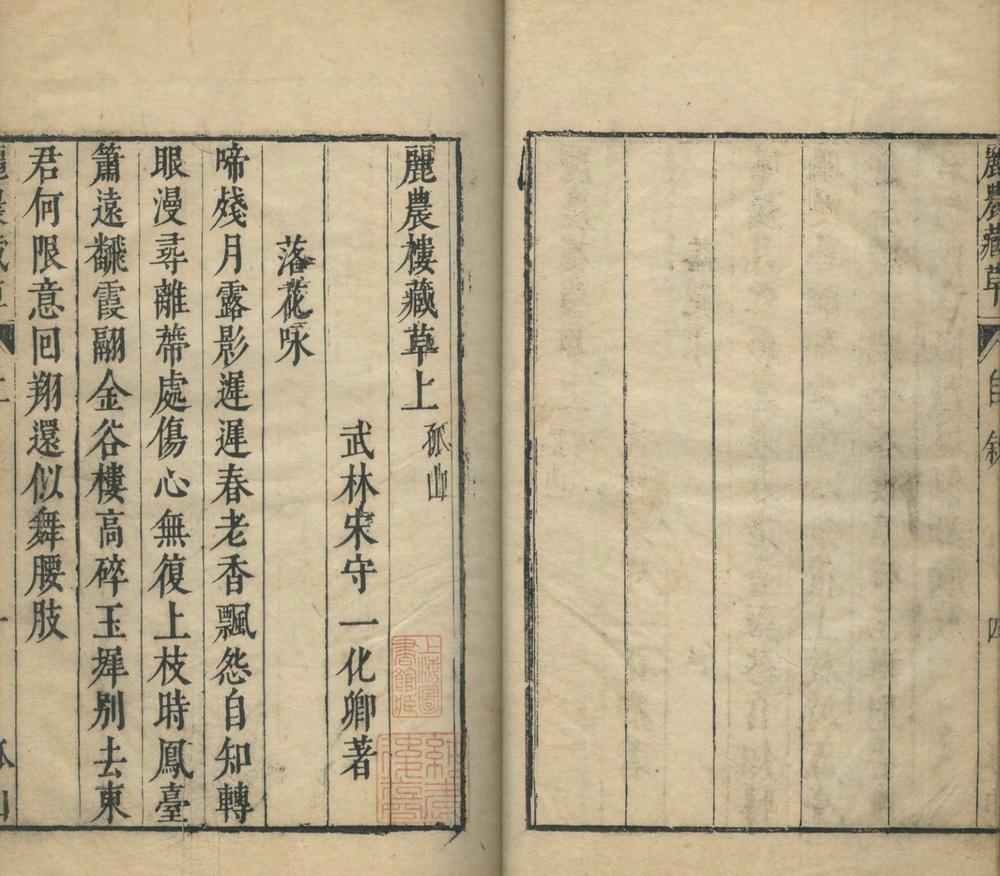 麗農藏草
四
麗農樓藏草上 孤山
武林宋守一化卿著
落花咏
啼殘月露影遲遲春老香飄怨自知轉
眼漫尋離蔕處傷心無復上枝時鳳臺
簫遠飜霞翮金谷樓高碎玉墀別去東
君何限意回翔還似舞腰肢
上海圖書館藏